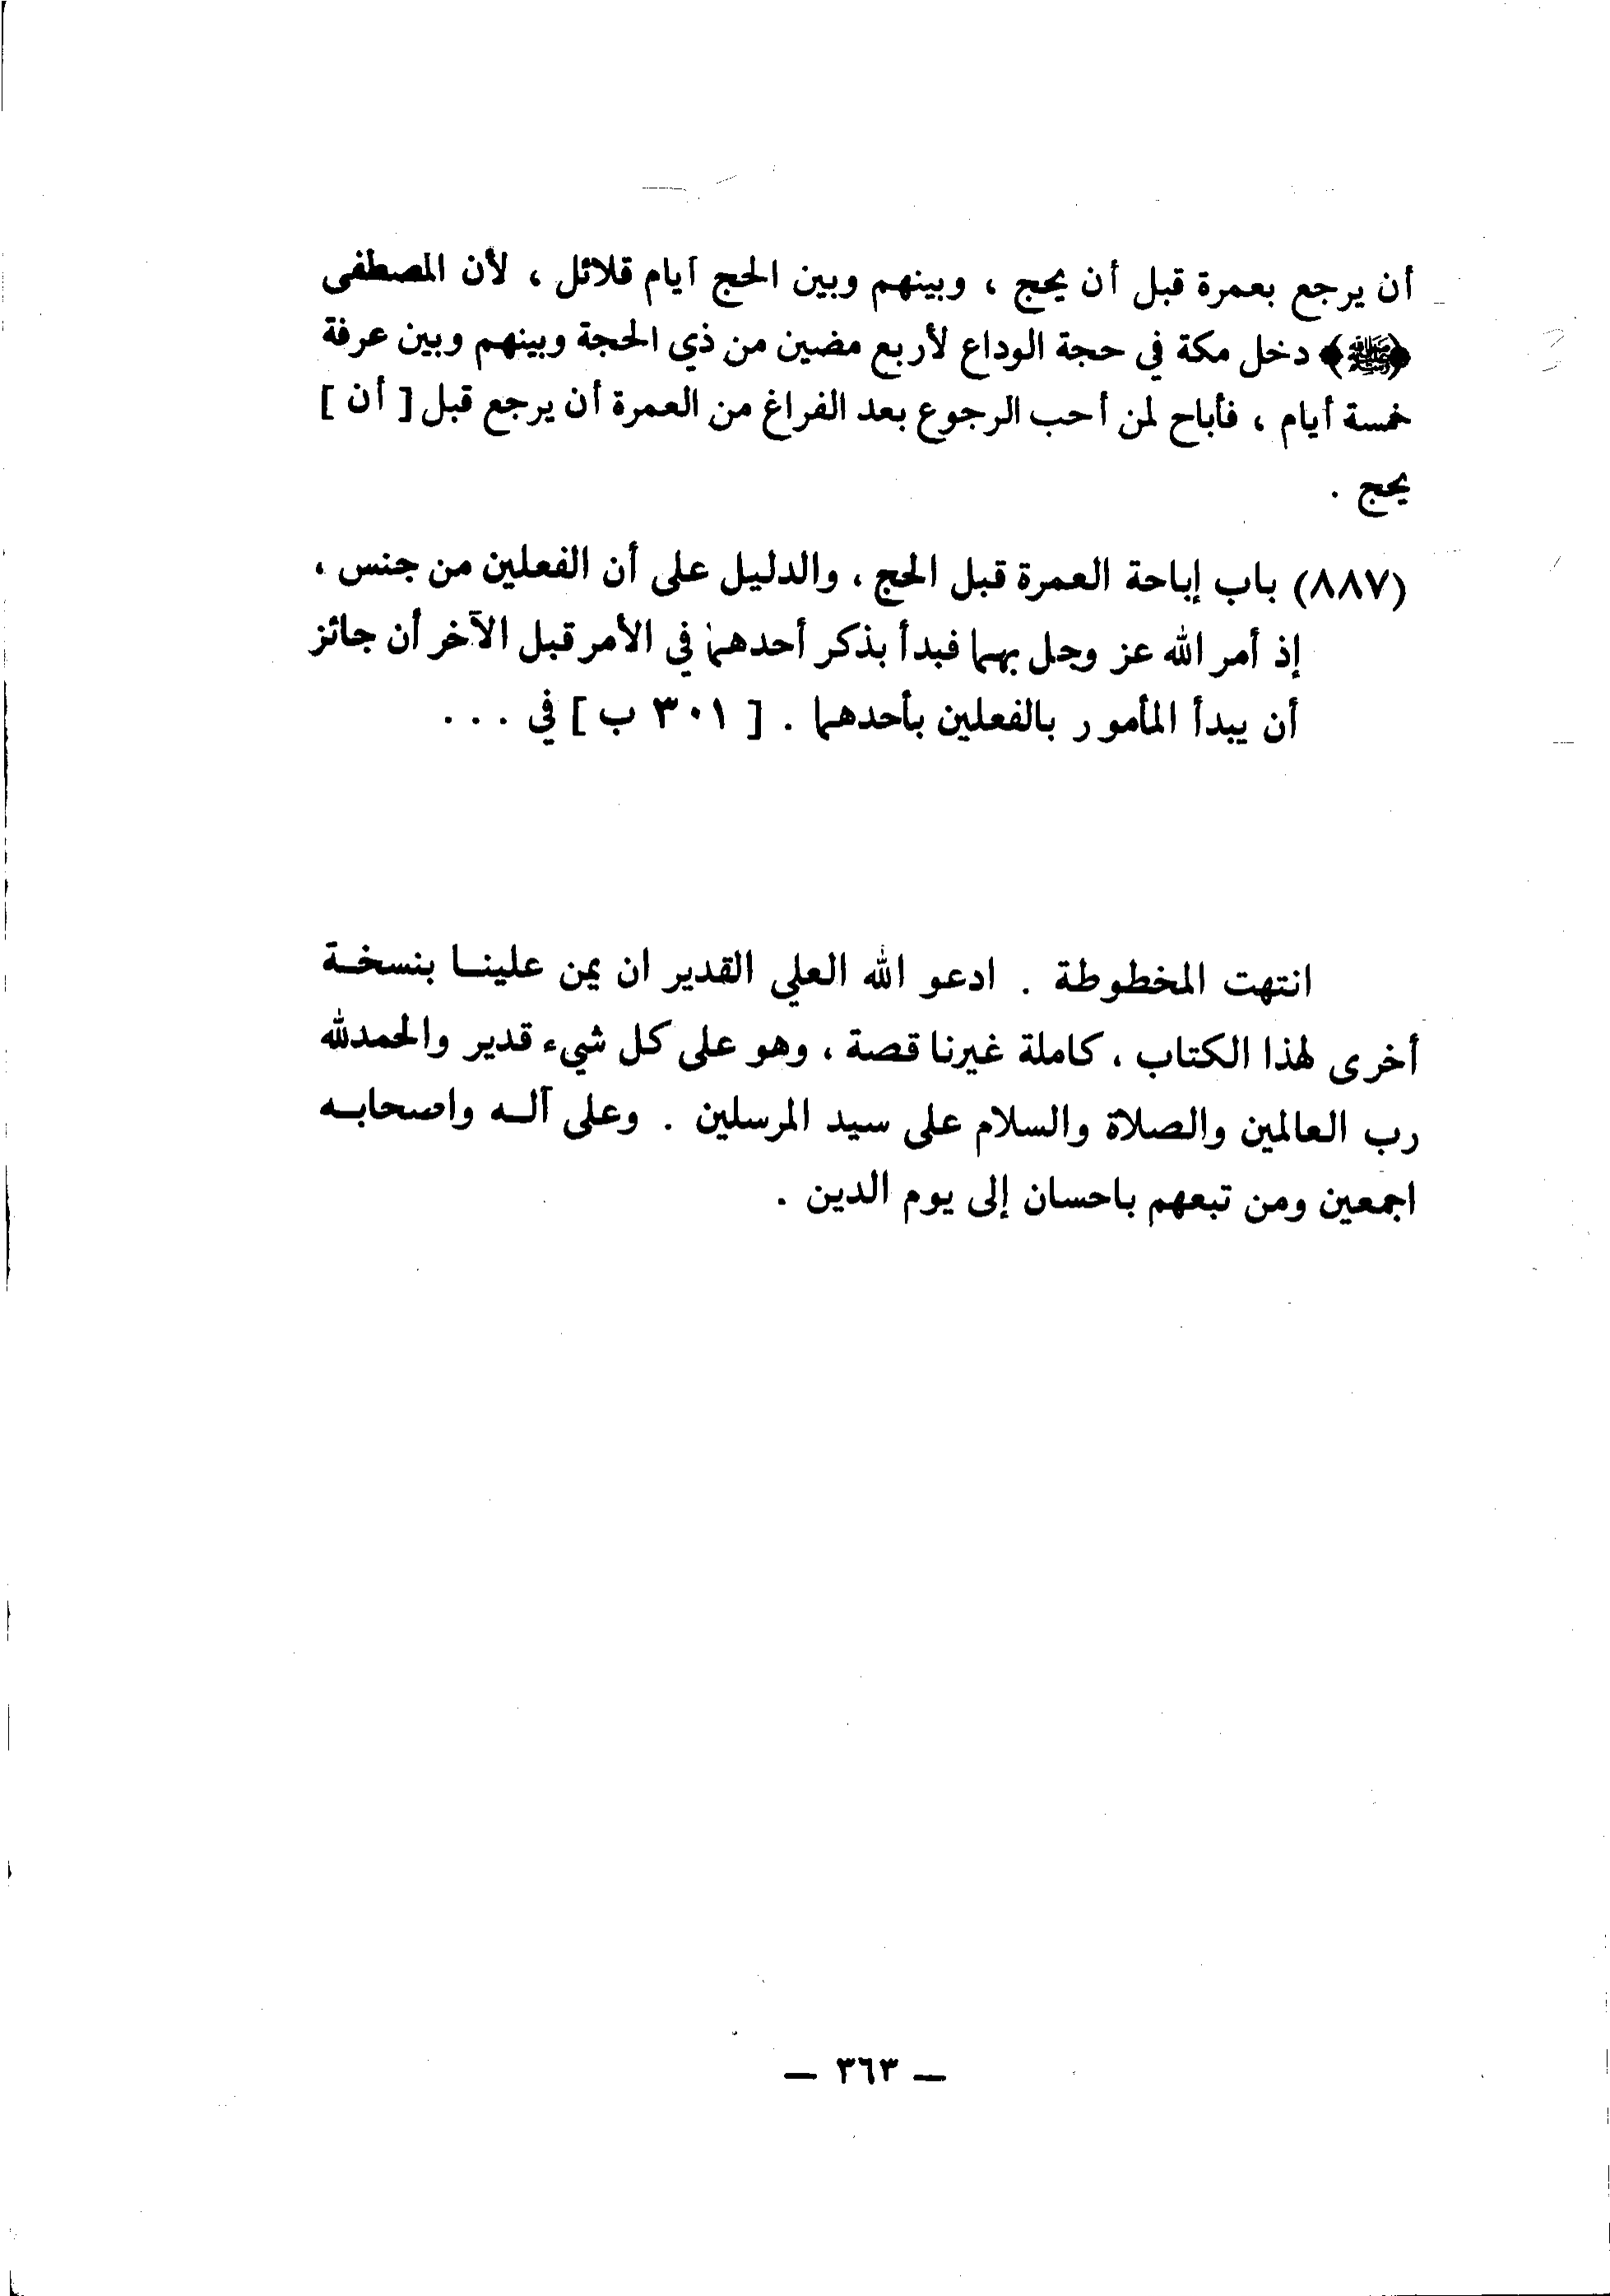 أن يرجع بعمرة قبل أن يحج ، وبينهم وبين الحج أيام قلائل ، لأن المصطفى
﴿ﷺ﴾ دخل مكة في حجة الوداع لأربع مضين من ذي الحجة وبينهم وبين عرفة
خمسة أيام ، فأباح لمن أحب الرجوع بعد الفراغ من العمرة أن يرجع قبل [ أن ]
يحج .
(٨٨٧) باب إباحة العمرة قبل الحج ، والدليل على أن الفعلين من جنس ،
إذ أمر الله عز وجل بهما فبدأ بذكر أحدهما في الأمر قبل الآخر أن جائز
أن يبدأ المأمور بالفعلين بأحدهما . [ ٣٠١ ب ] في . . .
انتهت المخطوطة . ادعو الله العلي القدير ان يمن علينـا بنسخـة
أخرى لهذا الكتاب ، كاملة غيرنا قصة ، وهو على كل شيء قدير والحمدلله
رب العالمين والصلاة والسلام على سيد المرسلين . وعلى آلـه واصحابـه
اجمعين ومن تبعهم باحسان إلى يوم الدين .
— ٣٦٣ —